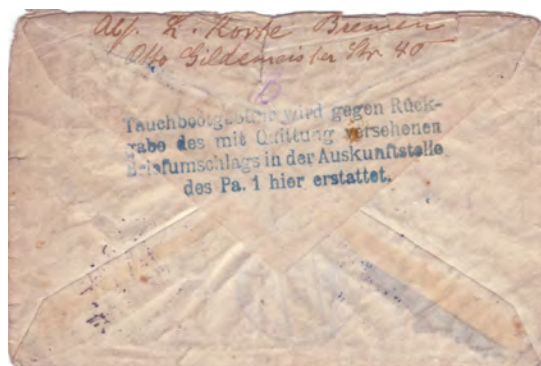 Abs. L. Korte Bremen
Otto Gildemeister Str. 40
Tauchbootgebühr wird gegen Rück-
gabe des mit Quittung versehenen
Briefumschlags in der Auskunftstelle
des Pa. 1 hier erstattet.